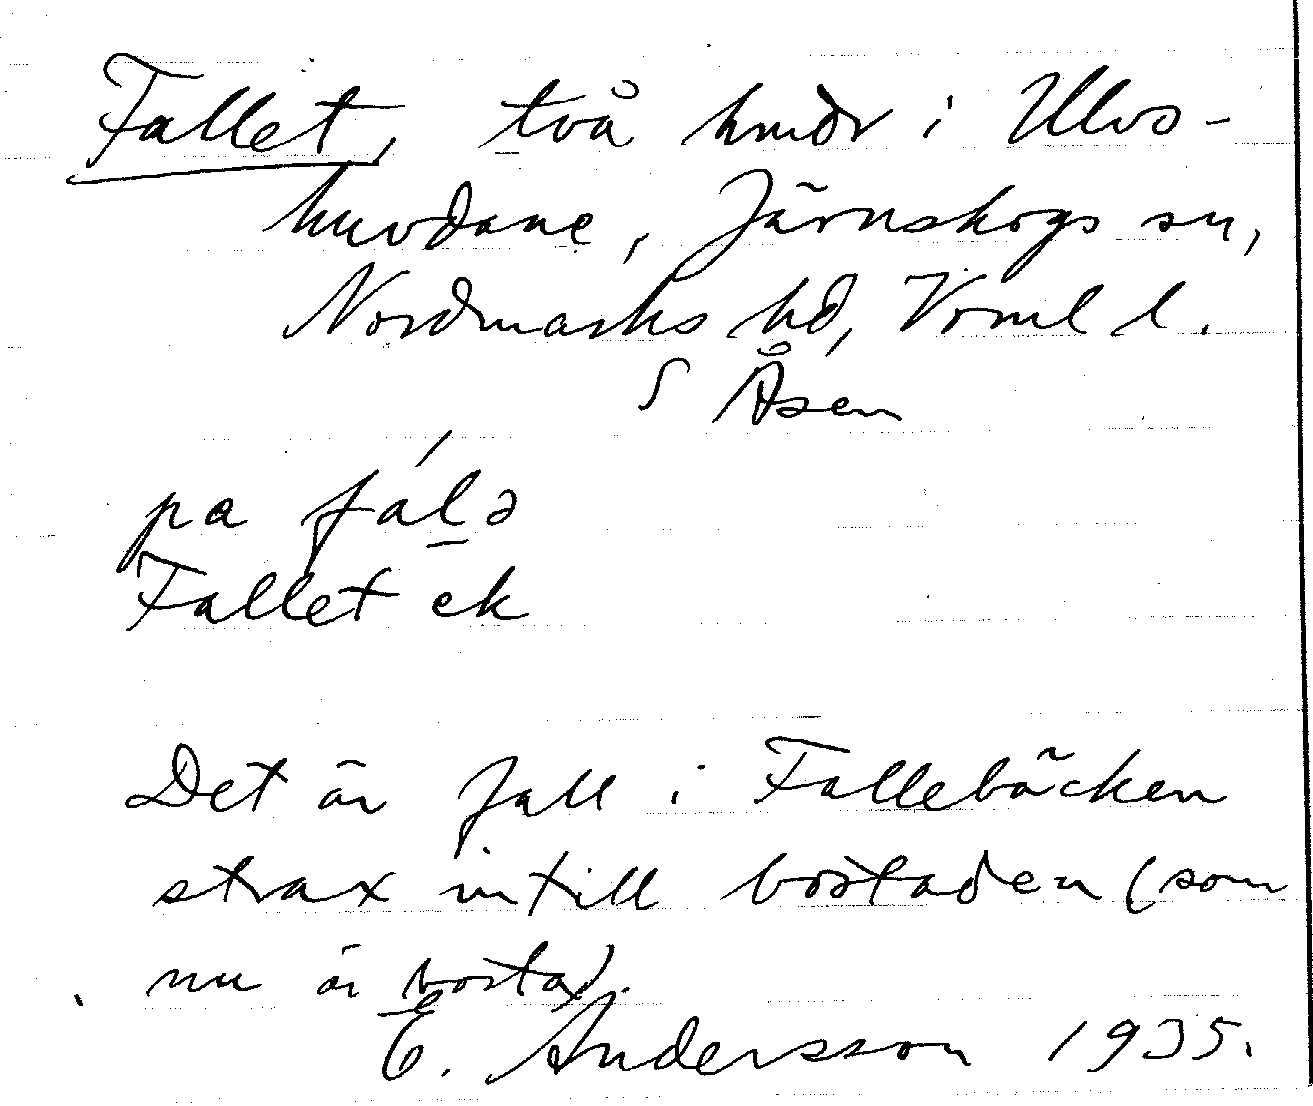 Fallet, två hmdr i Ulvs-
huvdane, Järnskogs sn,
Nordmarks hd, Vrml l.
S Åsen
pa fálə
Fallet ek
Det är fall i Fallebäcken
strax intill bostaden (som
nu är borta).
E. Andersson 1935.